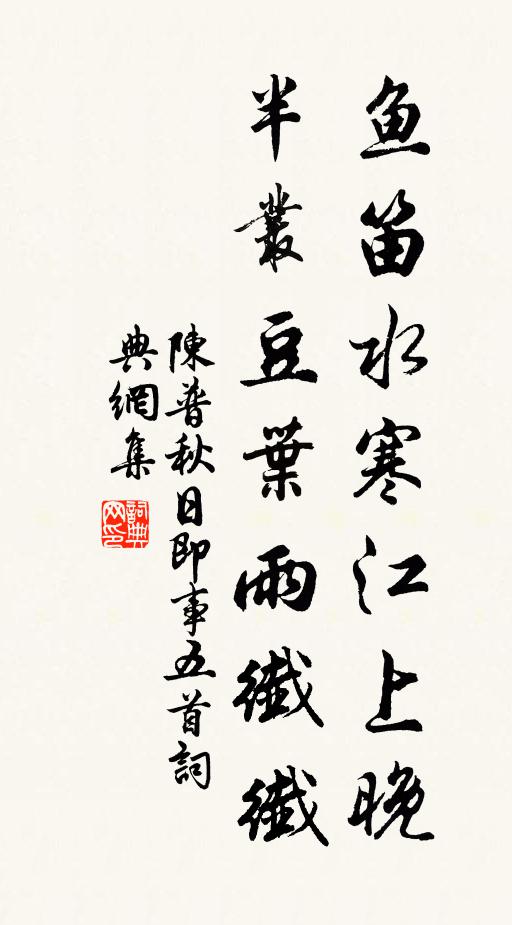 魚笛水寒江上晚
半叢豆葉雨纖纖
陳普秋日即事五首詞
典網集
詞典网印